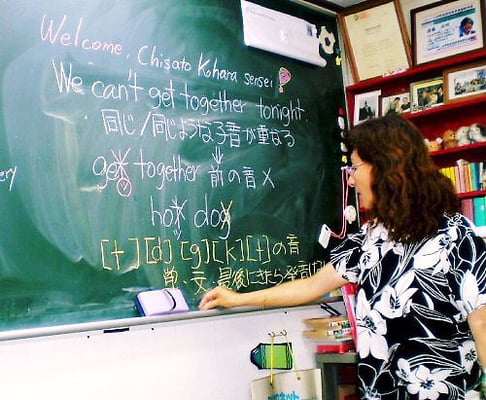 Welcome, Chisato Kohara sensei
We can't get together tonight.
・同じ/同じような子音が重なる
get together 前の音 x
hot dog
[t][d][g][k][t]の音
単、文、最後にきたら発音